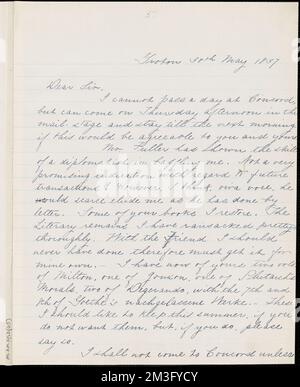 5
Groton 30th May 1837
Dear Sir,
I cannot pass a day at Concord,
but can come on Thursday afternoon in the
mail stage and stay till the next morning
if this would be agreeable to you and yours
Mr. Fuller has shown the skill
of a diplomatist in baffling me. Not a very
promising indication with regard to future
transactions! However I think, viva voce, he
would scarce elude me as he has done by
letter. Some of your books I restore. The
Literary remains I have ransacked pretty
thoroughly. With the Friend I should
never have done therefore must get it for
mine own. I have now of yours two vols
of Milton, one of Jonson, one of Plutarch's
Morals, two of Degerando, with the 7th and
8th of Goethe's nachgelassene Werke. These
I should like to keep this summer, if you
do not want them, but, if you do, please
say so.
I shall not come to Concord unless
alamy
Image ID: 2M3FYCY
www.alamy.com